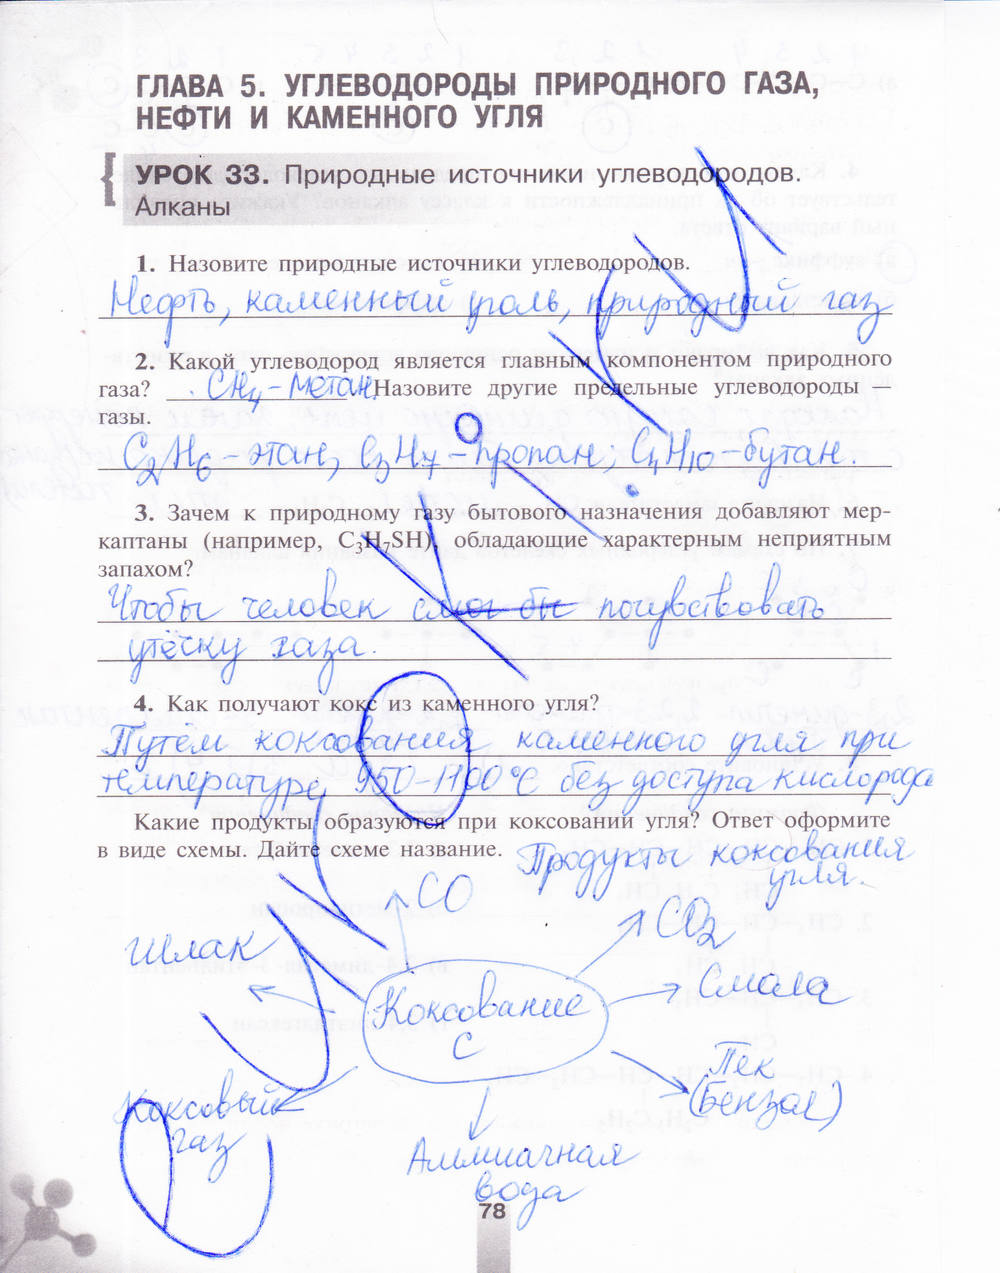 ГЛАВА 5. УГЛЕВОДОРОДЫ ПРИРОДНОГО ГАЗА,
НЕФТИ И КАМЕННОГО УГЛЯ
УРОК 33. Природные источники углеводородов.
Алканы
1. Назовите природные источники углеводородов.
Нефть, каменный уголь, природный газ
2. Какой углеводород является главным компонентом природного
газа? CH4 - метан. Назовите другие предельные углеводороды –
газы.
C2H6 - этан, C3H7 - пропан; C4H10 - бутан.
3. Зачем к природному газу бытового назначения добавляют мер-
каптаны (например, C3H7SH), обладающие характерным неприятным
запахом?
Чтобы человек смог бы почувствовать
утечку газа.
4. Как получают кокс из каменного угля?
Путём коксования каменного угля при
температуре 950-1100°C без доступа кислорода
Какие продукты образуются при коксовании угля? Ответ оформите
в виде схемы. Дайте схеме название.
Продукты коксования
угля.
CO
CO2
Шлак
Смола
Коксование
C
Пек
(Бензол)
Коксовый
газ
Аммиачная
вода
78